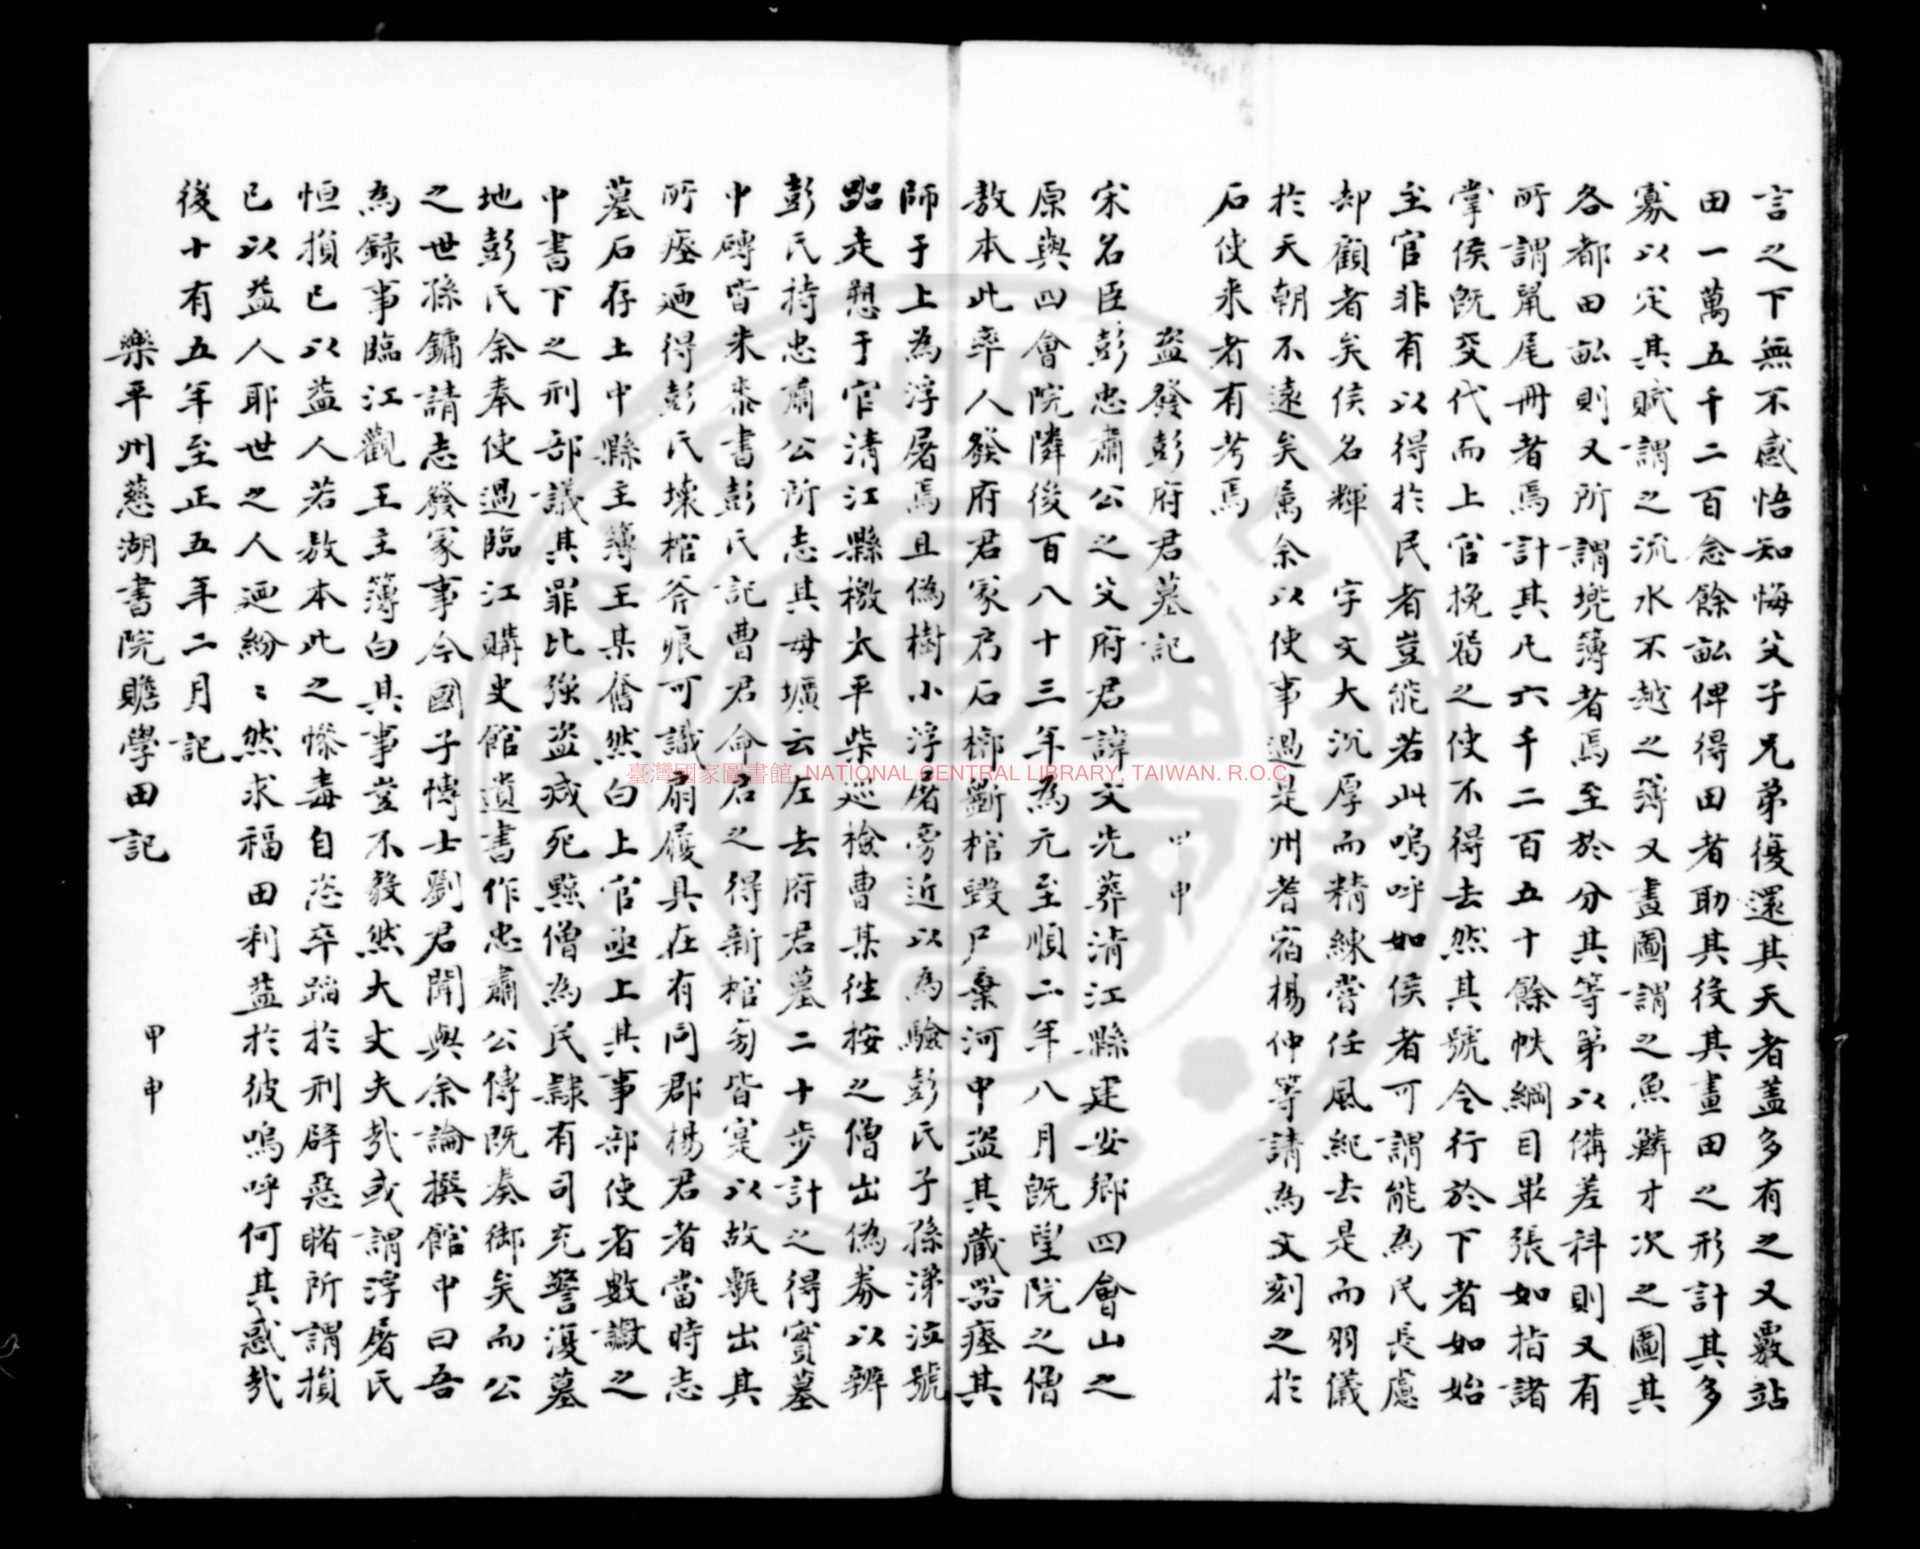 言之下無不感悟知悔父子兄弟復還其天者蓋多有之又覈站
田一萬五千二百念餘畝俾得田者助其役其畫田之形計其多
寡以定其賦謂之流水不越之簿又畫圖謂之魚鱗才次之圖其
各都田畝則又所謂兠簿者焉至於分其等第以備差科則又有
所謂鼠尾冊者焉計其凡六千二百五十餘帙綱目畢張如指諸
掌侯既受代而上官挽畱之使不得去然其號令行於下者如始
至官非有以得於民者豈能若此嗚呼如侯者可謂能為民長慮
却顧者矣侯名輝　字文大沉厚而精練嘗任風紀去是而羽儀
於天朝不遠矣属余以使事過是州耆宿楊仲等請為文刻之於
石使来者有考焉
盜發彭府君墓記　甲申
宋名臣彭忠肅公之父府君諱文光葬清江縣建安鄉四會山之
原與四會院隣後百八十三年為元至順二年八月既望院之僧
敖本此率人發府君冢㓂石槨斷棺毀尸棄河中盜其藏器瘞其
師于上為浮屠焉且偽樹小浮屠旁近以為驗彭氏子孫涕泣號
踣走愬于官清江縣檄太平柴巡檢曹某徃按之僧出偽券以辨
彭氏持忠肅公所志其母壙云左去府君墓二十步計之得實墓
中磚皆朱泰書彭氏記曹君命启之得新棺匊皆寔以故甎出其
所瘞廼得彭氏壞棺斧痕可識扇履具在有同郡楊君者當時志
墓石存上中縣主簿王某奮然白上官亟上其事部使者數讞之
中書下之刑部議其罪比強盜減死黥僧為民隷有司充警復墓
地彭氏余奉使過臨江購史館遺書作忠肅公傳既奏御矣而公
之世孫鏞請志發冢事今國子博士劉君聞與余論撰館中曰吾
為録事臨江觀王主簿白其事豈不毅然大丈夫㢤或謂浮屠氏
恒損已以益人若敖本此之慘毒自恣卒蹈於刑辟惡睹所謂損
已以益人耶世之人廼紛〻然求福田利益於彼嗚呼何其惑㢤
後十有五年至正五年二月記
樂平州慈湖書院贍學田記　甲申
臺灣國家圖書館, NATIONAL CENTRAL LIBRARY, TAIWAN. R.O.C